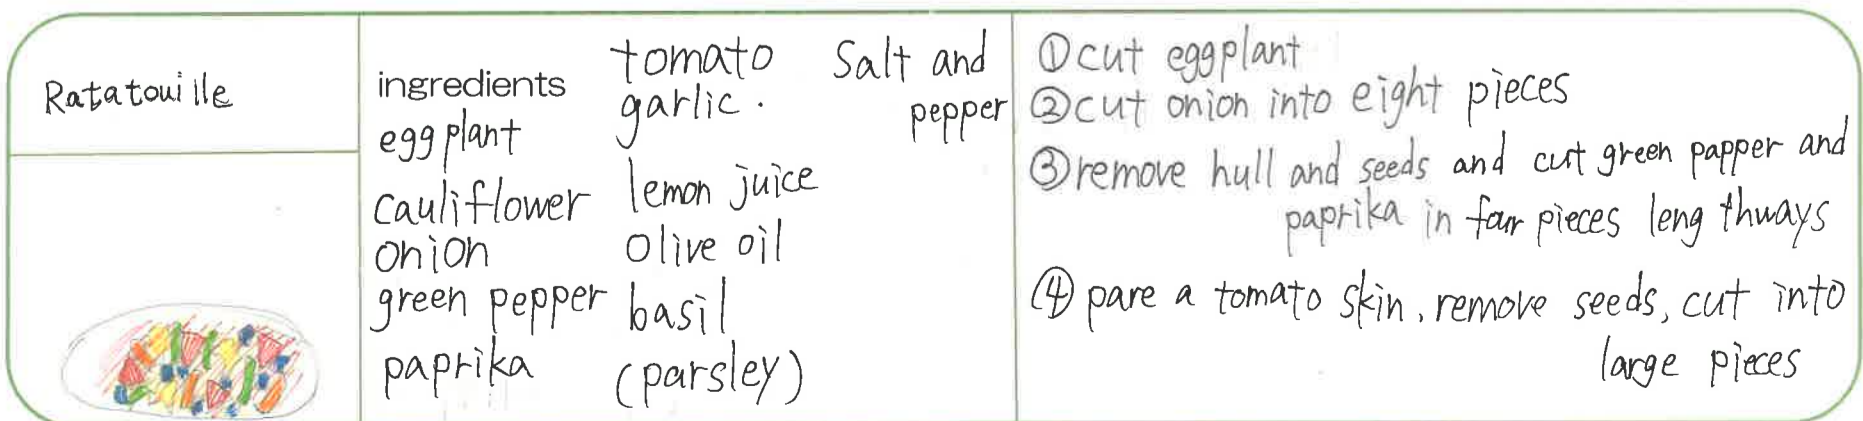 Ratatouille
ingredients
eggplant
cauliflower
onion
green pepper
paprika
tomato
garlic.
lemon juice
olive oil
basil
(parsley)
Salt and
pepper
①cut eggplant
②cut onion into eight pieces
③remove hull and seeds and cut green papper and
paprika in four pieces lengthways
④pare a tomato skin, remove seeds, cut into
large pieces